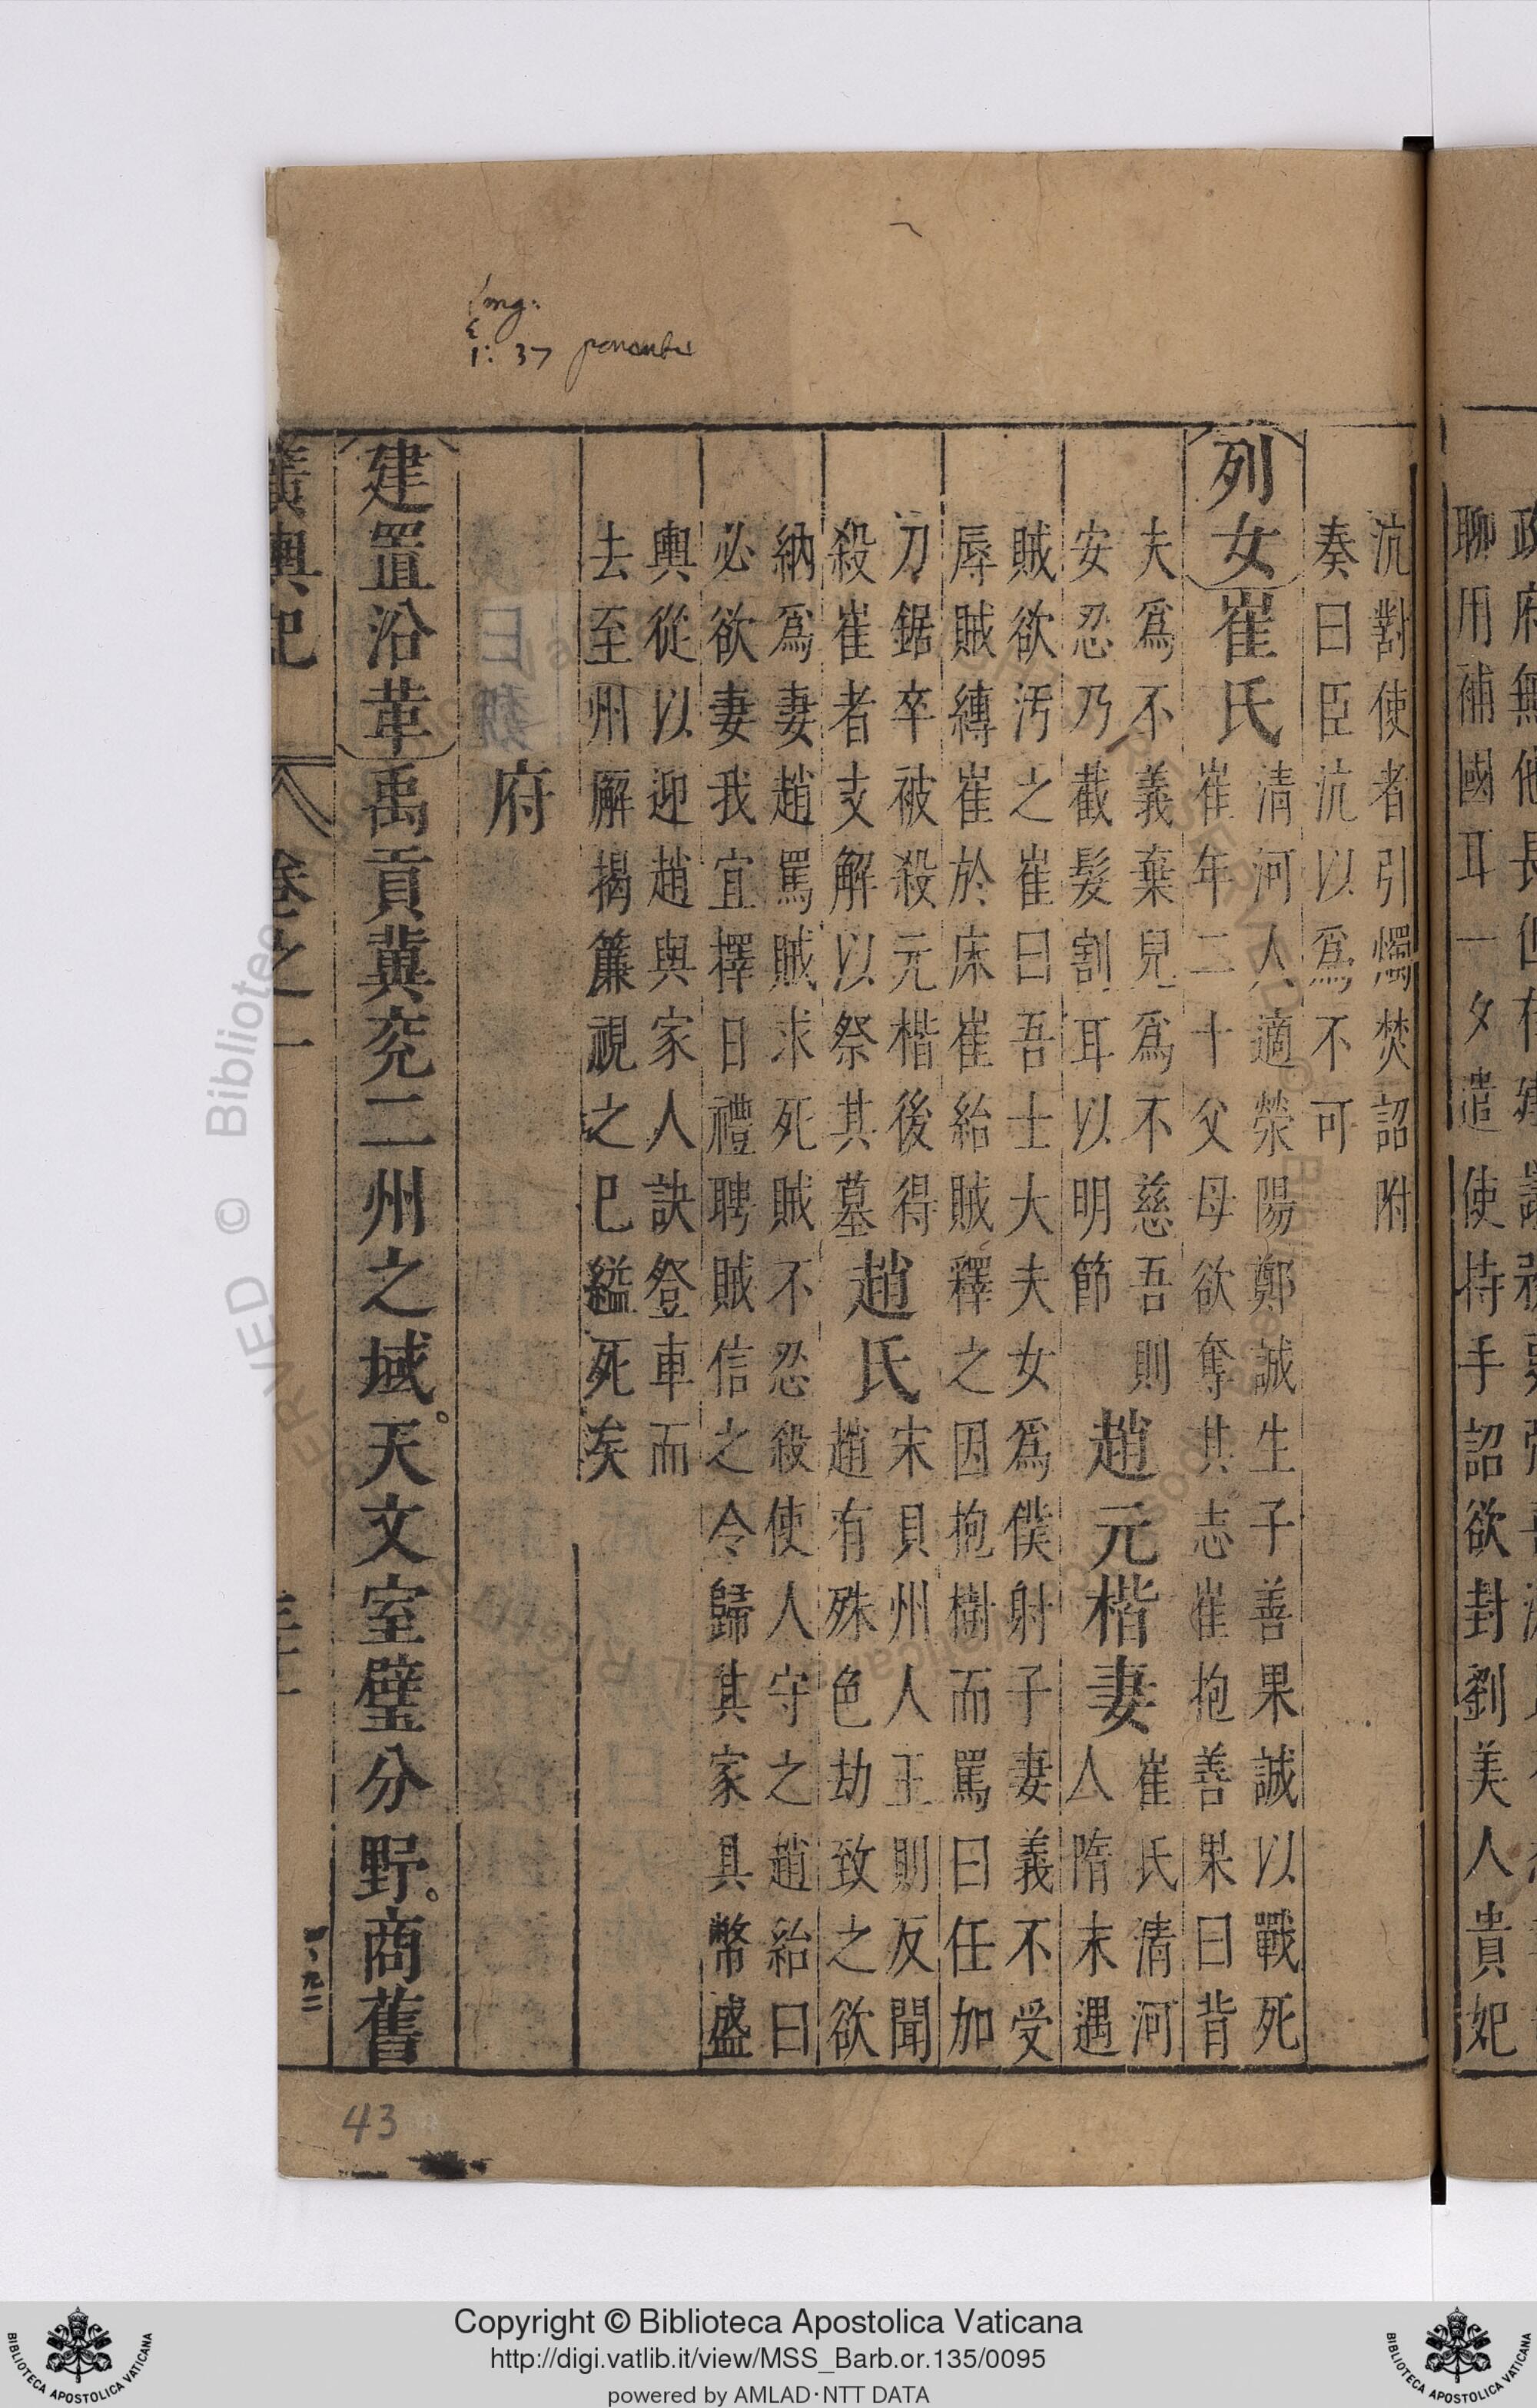 聊用補國耳一夕遣使持手詔欲封劉美人貴妃
沆對使者引燭焚詔附
奏曰臣沆以爲不可
列女崔氏
清河人適滎陽鄭誠生子善果誠以戰死
崔年二十父母欲奪其志崔抱善果曰背
夫爲不義棄兒爲不慈吾則
安忍乃截髮割耳以明節
趙元楷妻
崔氏清河
人隋末遇
賊欲汚之崔曰吾士大夫女爲僕射子妻義不受
辱賊縛崔於床崔紿賊釋之因抱樹而罵曰任加
刀鋸卒被殺元楷後得
殺崔者支解以祭其墓
趙氏
宋貝州人王則反聞
趙有殊色劫致之欲
納爲妻趙罵賊求死賊不忍殺使人守之趙紿曰
必欲妻我宜擇日禮聘賊信之令歸其家具幣盛
輿從以迎趙與家人訣登車而
去至州廨揭簾視之已縊死矣
曰魏
府
建置沿革禹貢冀兖二州之域。天文室璧分野。商舊
輿記
卷之一
四、九二
1: 37
43
Copyright © Biblioteca Apostolica Vaticana
http://digi.vatlib.it/view/MSS_Barb.or.135/0095
powered by AMLAD·NTT DATA
BIBLIOTECA APOSTOLICA VATICANA
BIBLIOTECA APOSTOLICA VATICANA